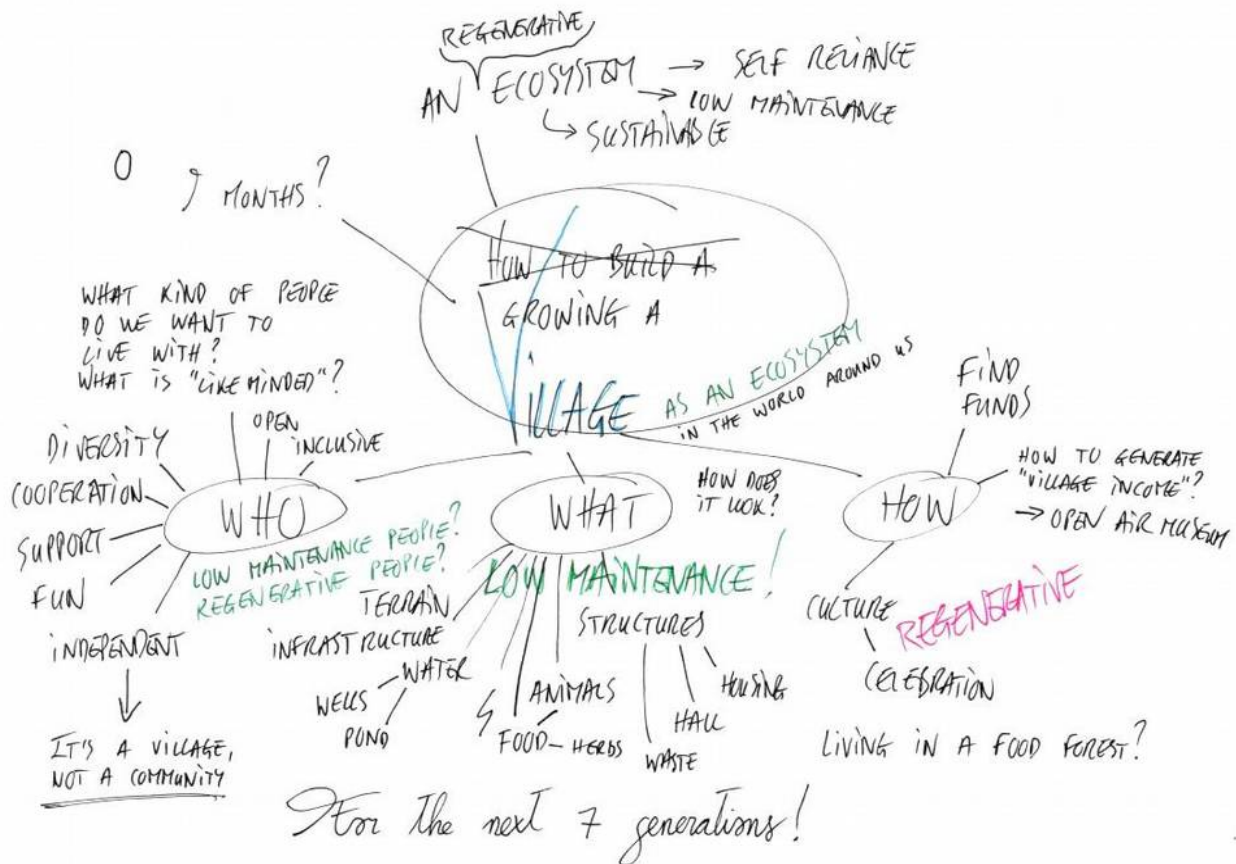 REGENERATIVE
AN ECOSYSTEM → SELF RELIANCE
→ LOW MAINTENANCE
↳ SUSTAINABLE
MONTHS?
HOW TO BUILD A
GROWING A
VILLAGE AS AN ECOSYSTEM
IN THE WORLD AROUND US
WHAT KIND OF PEOPLE
DO WE WANT TO
LIVE WITH?
WHAT IS "LIKE MINDED"?
OPEN
INCLUSIVE
DIVERSITY
COOPERATION
SUPPORT
FUN
INDEPENDENT
WHO
LOW MAINTENANCE PEOPLE?
REGENERATIVE PEOPLE?
IT'S A VILLAGE,
NOT A COMMUNITY
WHAT
HOW DOES
IT LOOK?
LOW MAINTENANCE!
TERRAIN
INFRASTRUCTURE
WATER
WELLS
POND
ANIMALS
FOOD - HERBS
STRUCTURES
HOUSING
HALL
WASTE
HOW
FIND
FUNDS
HOW TO GENERATE
"VILLAGE INCOME"?
→ OPEN AIR MUSEUM
CULTURE
REGENERATIVE
CELEBRATION
LIVING IN A FOOD FOREST?
For the next 7 generations!